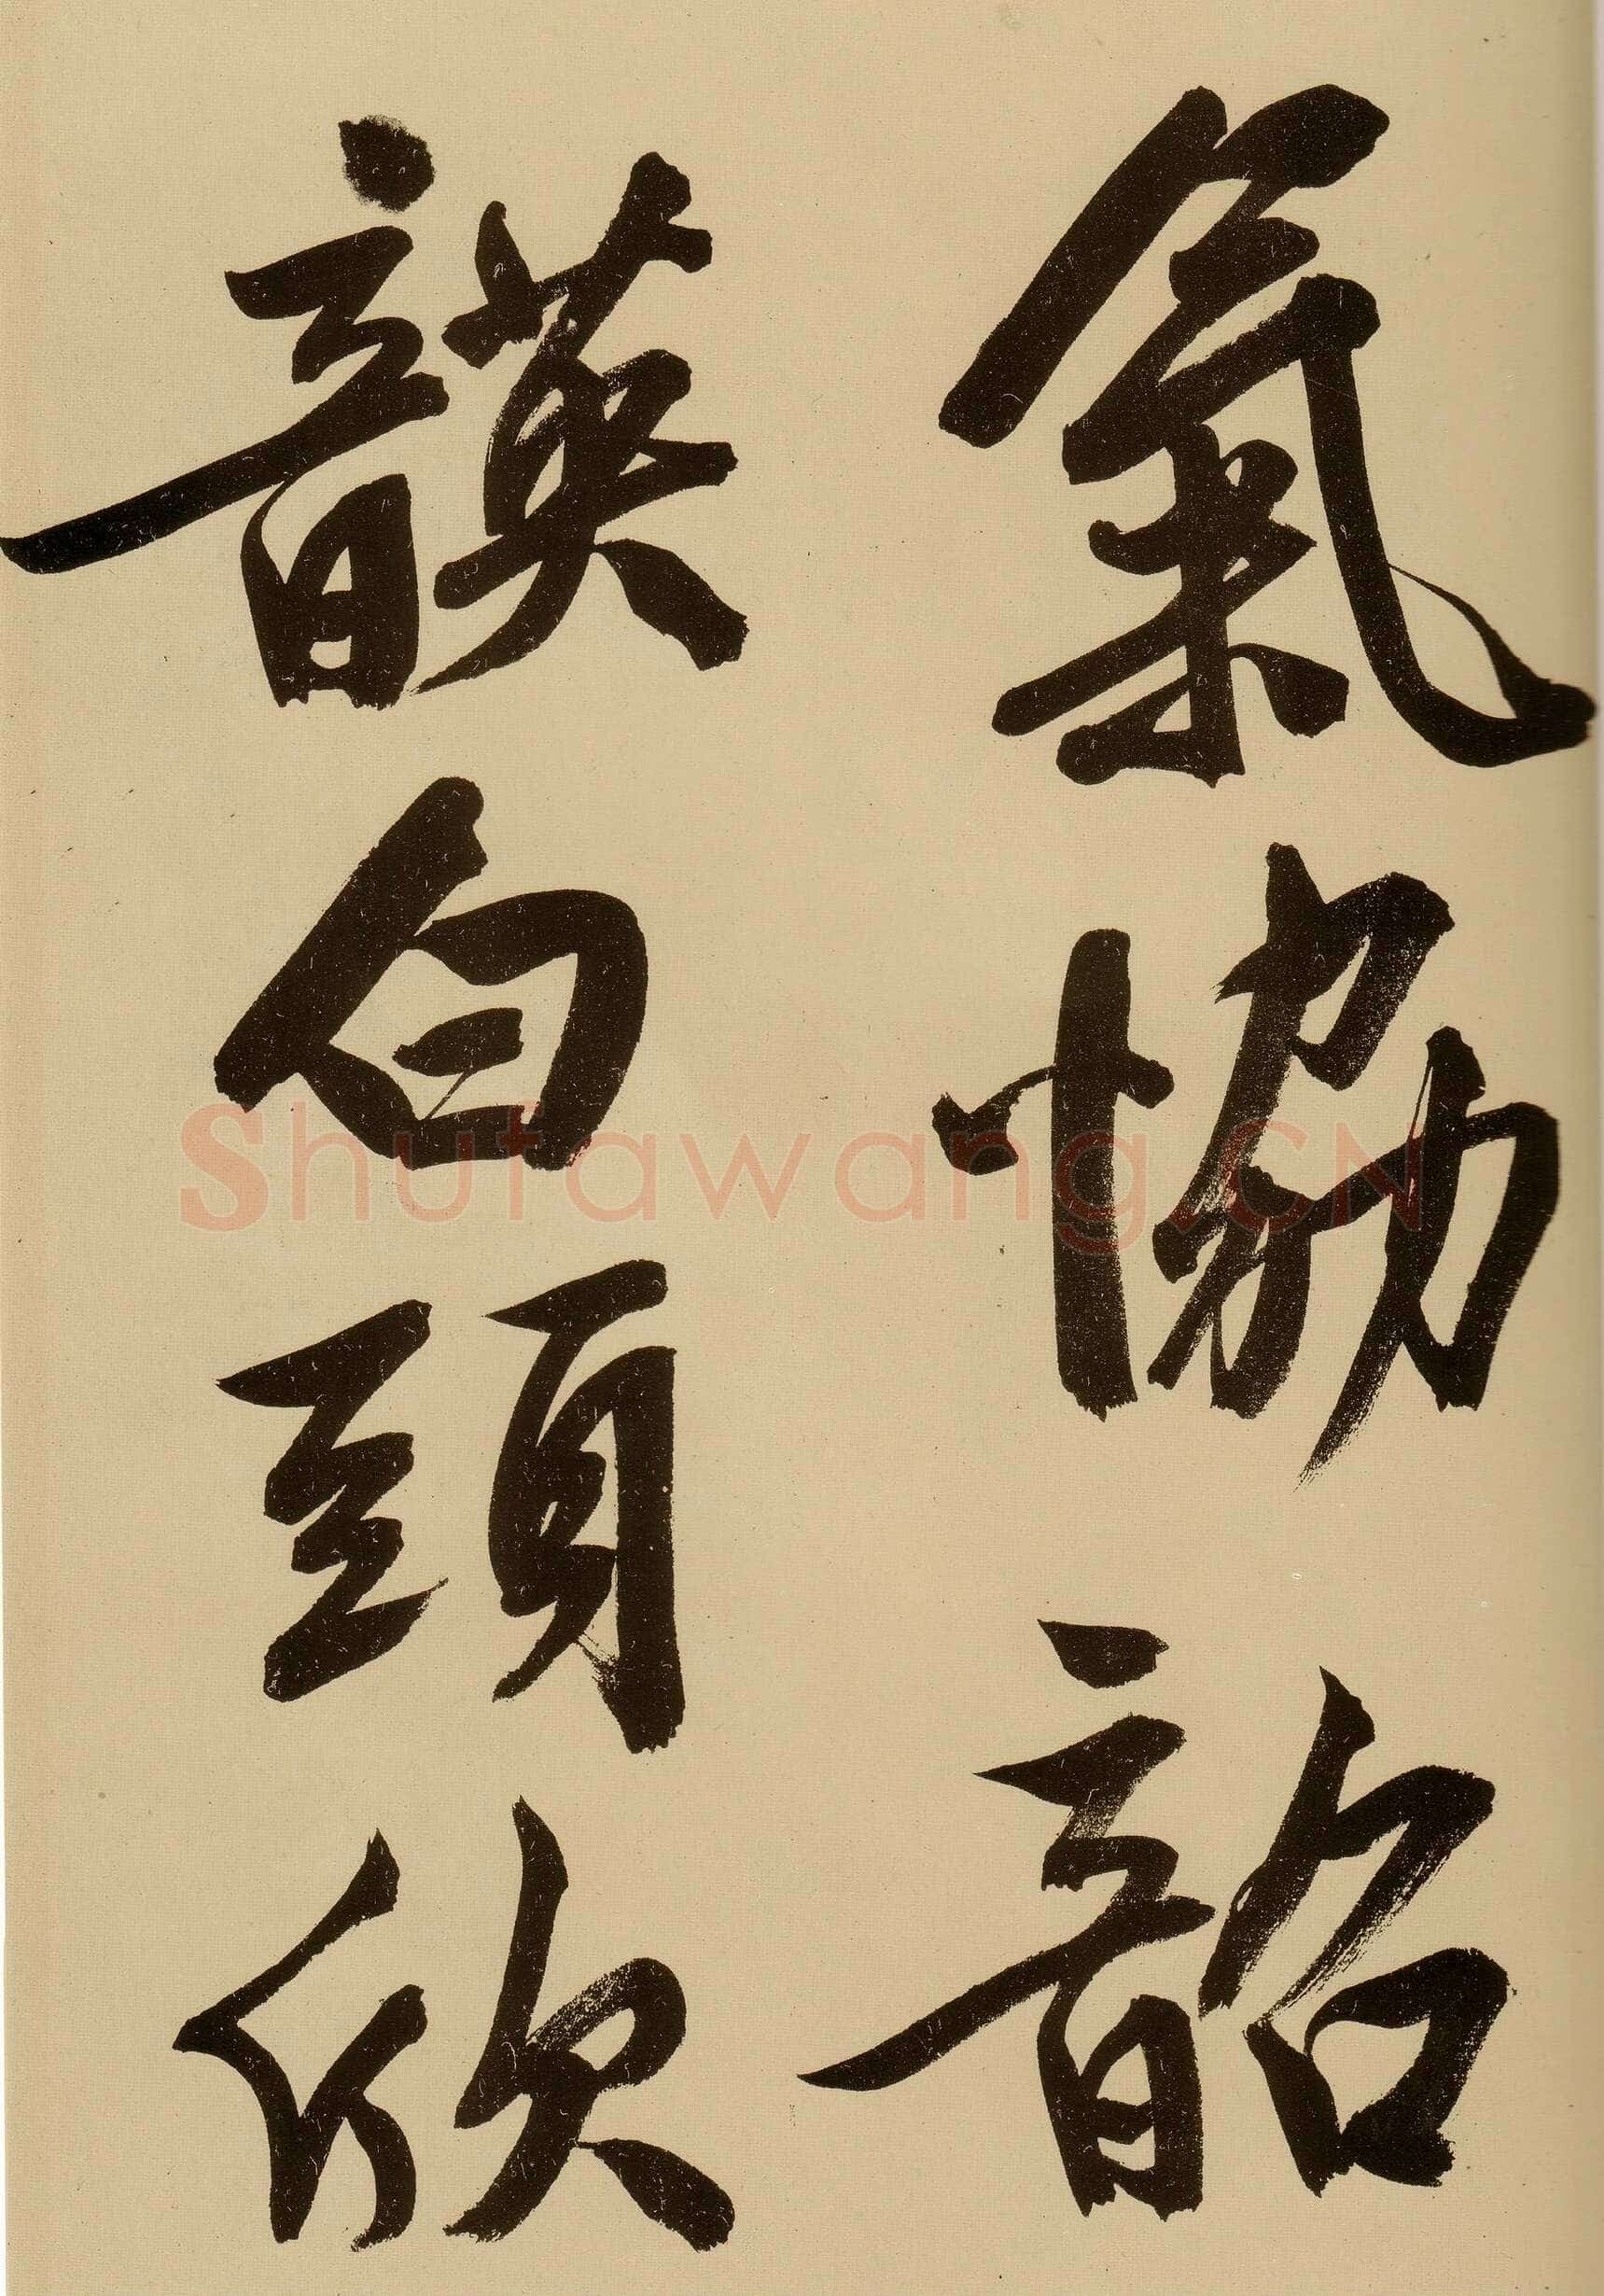 氣協韶
韺白頭欣
Shufawang.CN